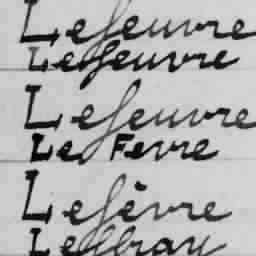 Lefeuvre
Lefeuvre
Lefeuvre
Le Fevre
Lefèvre